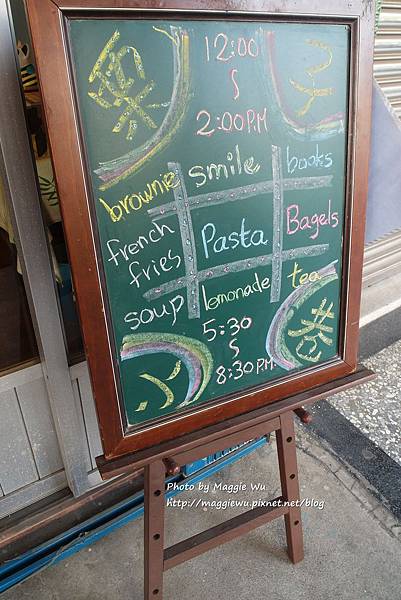 樂
12:00
∫
2:00P.M
子
brownie
smile
books
french
fries
Pasta
Bagels
soup
lemonade
tea
5:30
∫
8:30P.M.
Photo by Maggie Wu
http://maggiewu.pixnet.net/blog